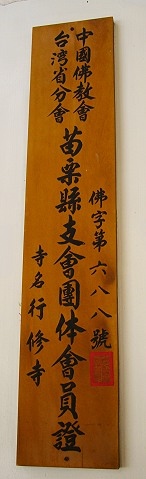 中國佛教會
台湾省分會
苗栗縣支會團体會員證
佛字第六八八號
寺名行修寺